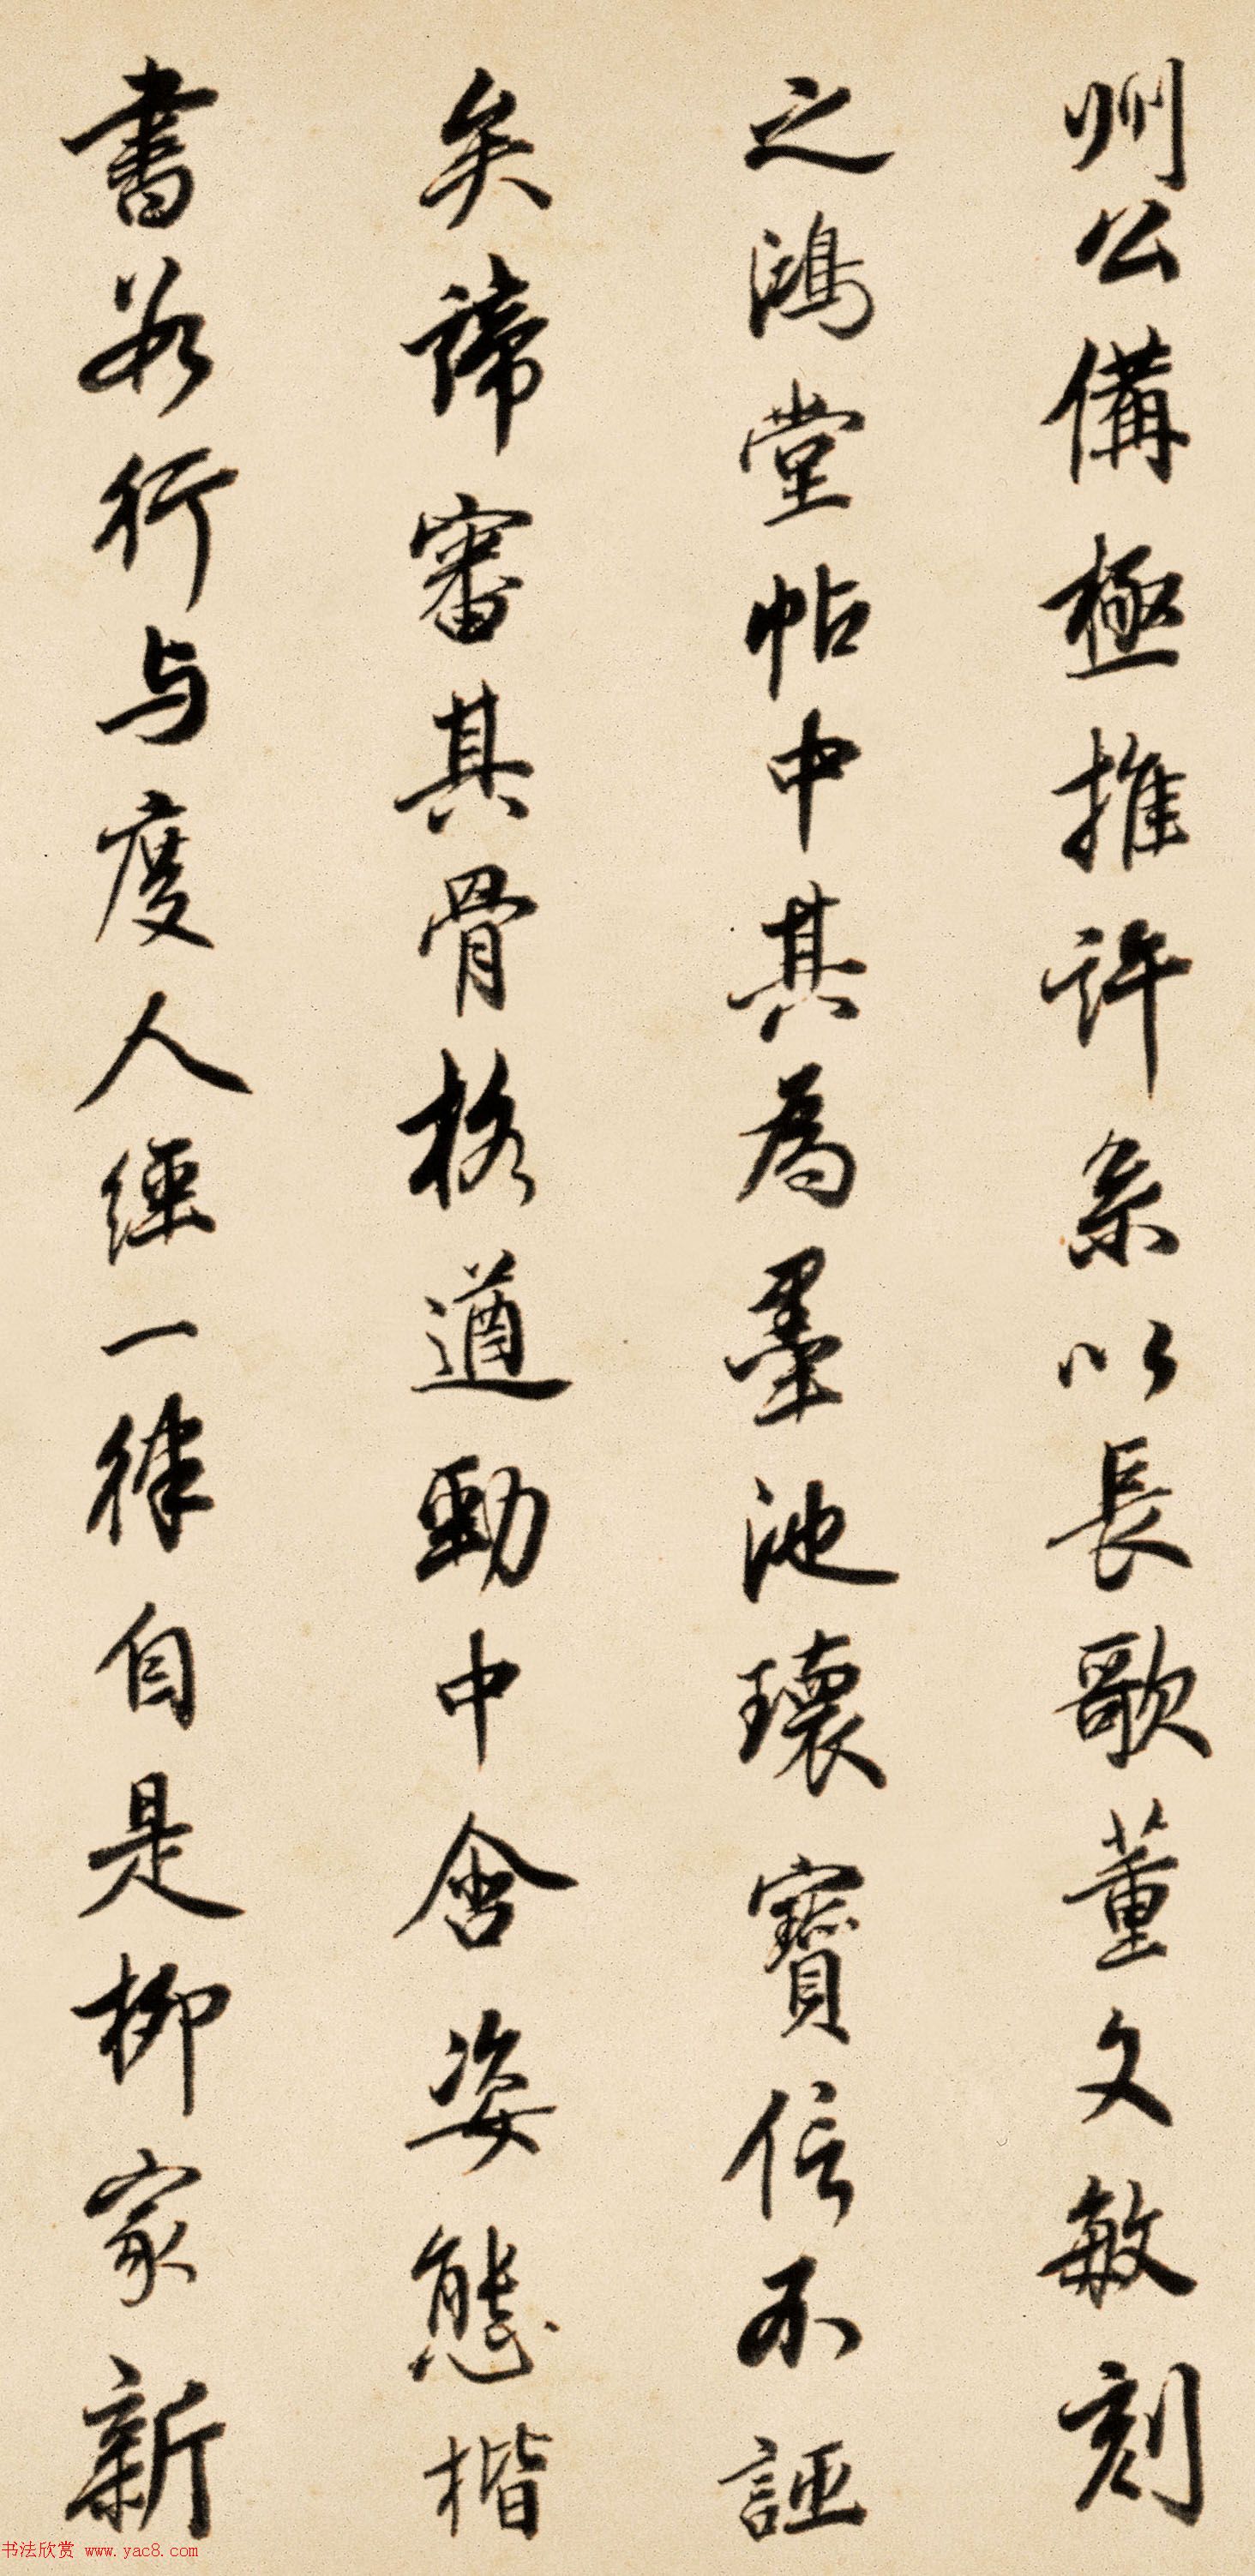 州公備極推許系以長歌董文敏刻
之鴻堂帖中其為墨池瓌寶信不誣
矣諦審其骨格遒勁中含姿態楷
書㠯行与度人經一律自是柳家新
书法欣赏 www.yac8.com